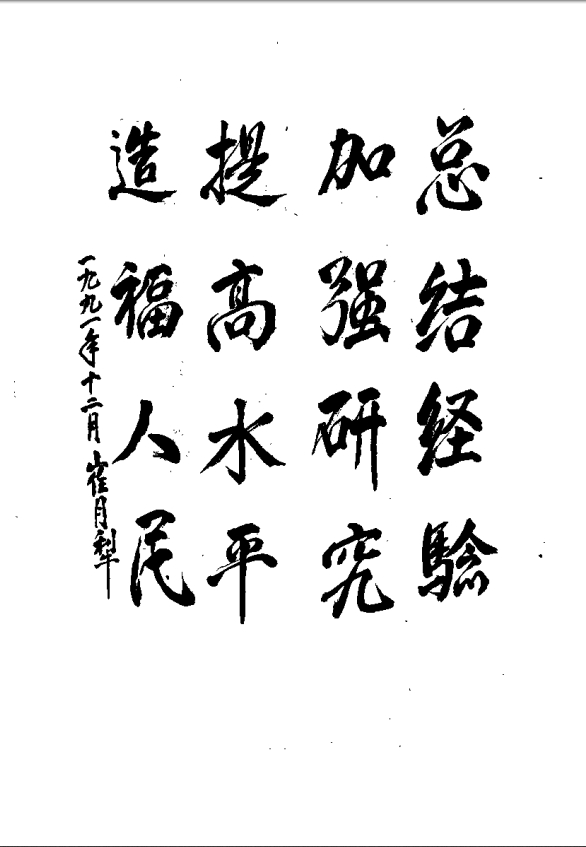 总结经验
加强研究
提高水平
造福人民
一九九一年十二月 崔月犁